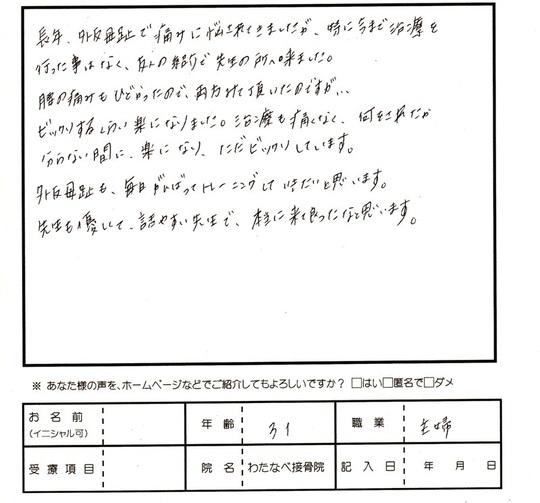 長年、外反母趾で痛みに悩まされてきましたが、特に今まで治療を
行った事はなく、友人の紹介で先生の所へ来ました。
膝の痛みもひどかったので、両方みて頂いたのですが、、
ビックリするくらい楽になりました。治療も痛くなく、何をされたか
分らない間に、楽になり、ただビックリしています。
外反母趾も、毎日がんばってトレーニングしていきたいと思います。
先生も優しくて、話やすい先生で、本当に来て良かったなと思います。
※ あなた様の声を、ホームページなどでご紹介してもよろしいですか？ □はい□匿名で□ダメ
お名前
(イニシャル可)
年齢 31
職業 主婦
受療項目
院名 わたなべ接骨院
記入日 年 月 日